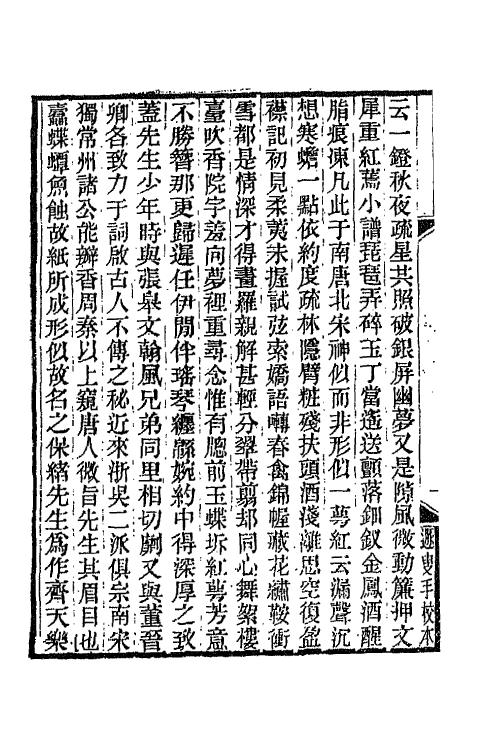 云一鐙秋夜疏星共照破銀屏幽夢又是隙風微動簾押文
犀重紅蔫小譜琵琶弄碎玉丁當遙送顫落鈿釵金鳳酒醒
脂痕凍凡此于南唐北宋神似而非形似一萼紅云漏聲沉
想寒蟾一點依約度疏林隱臂粧殘扶頭酒淺離思空復盈
襟記初見柔荑未握試弦索嬌語囀春禽錦幄藏花繡鞍衝
雪都是情深才得畫羅親解甚輕分翠帶翦却同心舞絮樓
臺吹香院宇羞向夢裡重尋念惟有牎前玉蝶坼紅萼芳意
不勝簪那更歸遲任伊閒伴瑤琴纏緜婉約中得深厚之致
蓋先生少年時與張皋文翰風兄弟同里相切劘又與董晉
卿各致力于詞啟古人不傳之秘近來浙吳二派俱宗南宋
獨常州諸公能瓣香周秦以上窺唐人微旨先生其眉目也
蠹蝶蟫魚蝕故紙所成形似故名之保緒先生爲作齊天樂
手校本